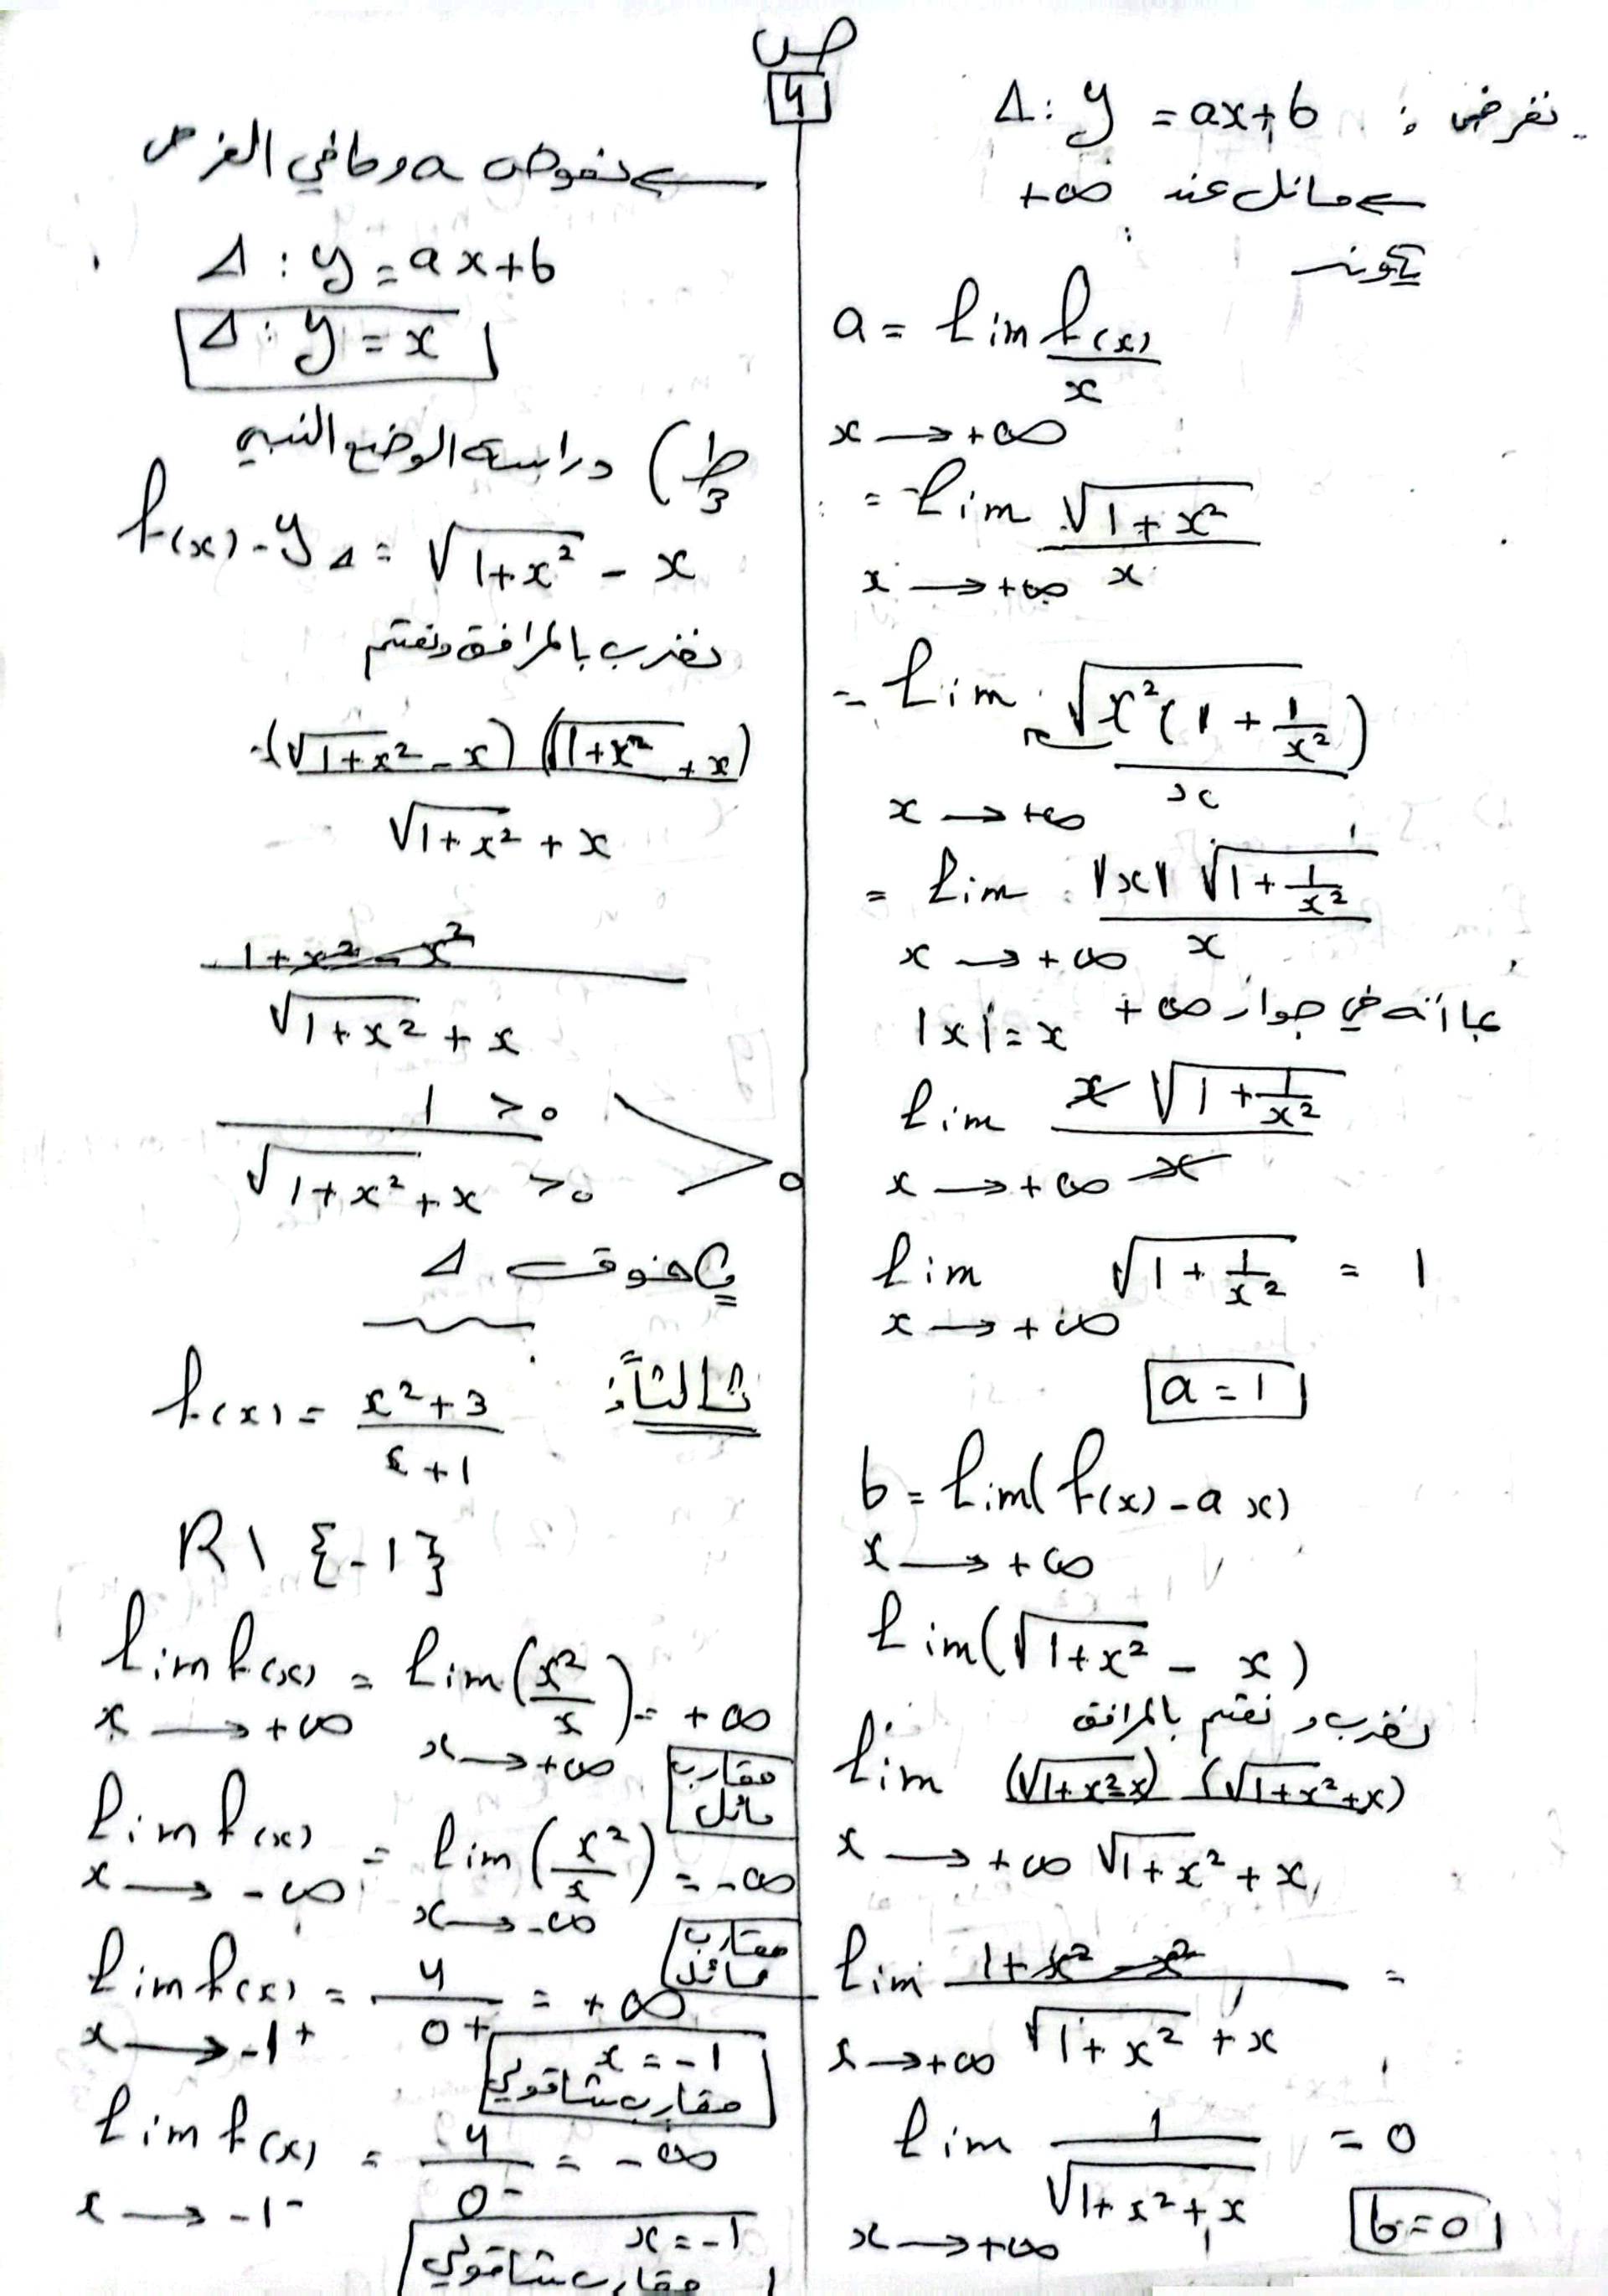 ص
4
نفرض : Δ: y = ax+b
مائل عند +∞
يكون
a = lim f(x)/x
x → +∞
= lim √(1+x²)/x
x → +∞
= lim √(x²(1 + 1/x²))/x
x → +∞
= lim |x| √(1+1/x²)/x
x → +∞
بما أنه في جوار +∞ |x|=x
lim x √(1+1/x²)/x
x → +∞
lim √(1+1/x²) = 1
x → +∞
a = 1
b = lim(f(x)-ax)
x → +∞
lim(√(1+x²) - x)
نضرب و نقسم بالمرافق
lim (√(1+x²)-x) (√(1+x²)+x)/(√(1+x²)+x)
x → +∞
lim (1+x²-x²)/(√(1+x²)+x) =
x → +∞
lim 1/(√(1+x²)+x) = 0
x → +∞
b=0
نعوض a و b في الفرض
Δ : y = ax+b
Δ : y = x
b3) دراسة الوضع النسبي
f(x) - yΔ = √(1+x²) - x
نضرب بالمرافق ونقسم
(√(1+x²)-x) (√(1+x²)+x)/(√(1+x²)+x)
(1+x²-x²)/(√(1+x²)+x)
1 >0
√(1+x²)+x >0
>0
فوق Δ
ثالثاً:
f(x) = (x²+3)/(x+1)
R\ {-1}
lim f(x) = lim(x²/x) = +∞
x → +∞ x → +∞
مقارب مائل
lim f(x) = lim(x²/x) = -∞
x → -∞ x → -∞
مقارب مائل
lim f(x) = 4/0+ = +∞
x → -1+
x = -1
مقارب شاقولي
lim f(x) = 4/0- = -∞
x → -1-
x = -1
مقارب شاقولي